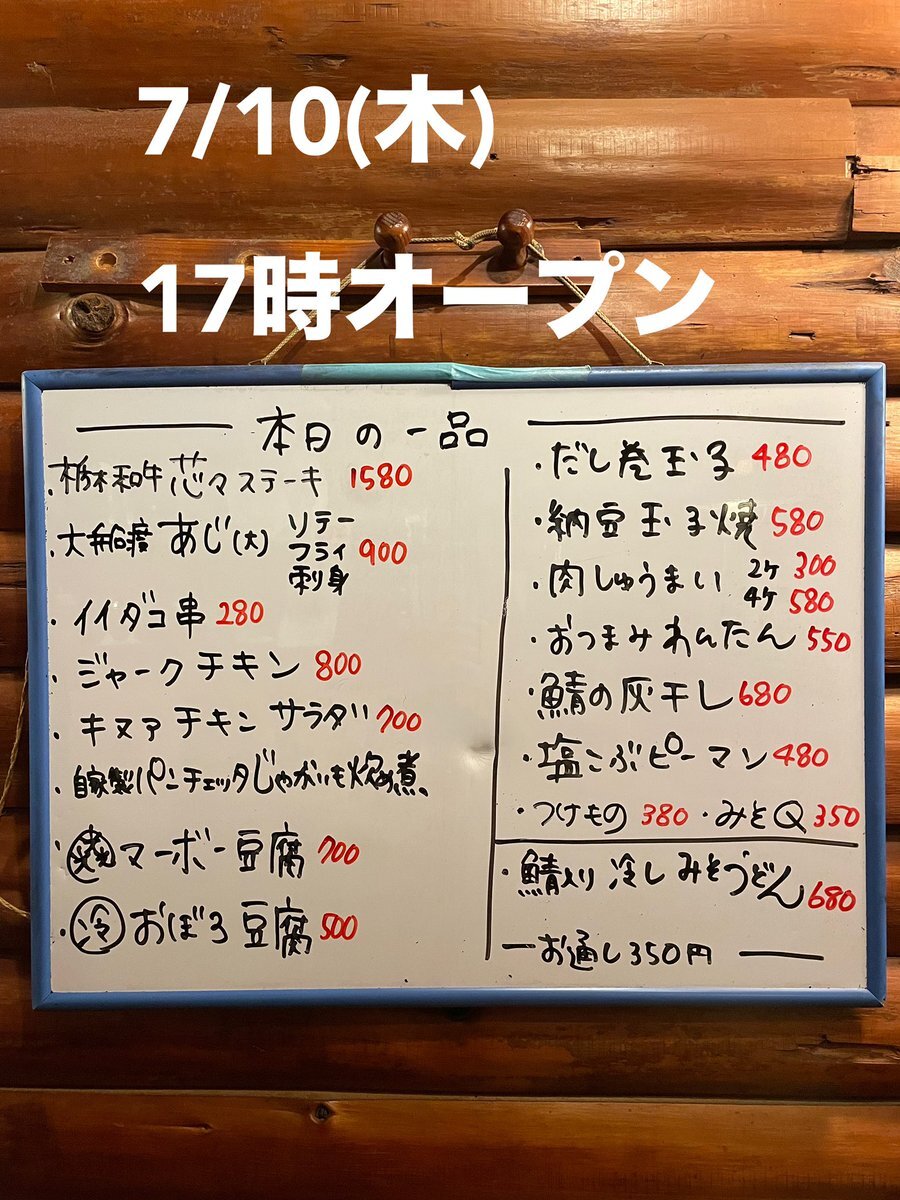 7/10(木)
17時オープン
本日の一品
・栃木和牛 芯々ステーキ 1580
・大船渡 あじ(大) ソテー フライ 刺身 900
・イイダコ串 280
・ジャークチキン 800
・キヌアチキンサラダ 700
・自家製パンチェッタじゃがいも炊め煮
・マーボー豆腐 700
・冷 おぼろ豆腐 500
・だし巻玉子 480
・納豆玉子焼 580
・肉しゅうまい 2ケ 300
4ケ 580
・おつまみわんたん 550
・鯖の灰干し 680
・塩こぶピーマン 480
・つけもの 380 ・みそQ 350
・鯖入り 冷しみそうどん 680
お通し350円